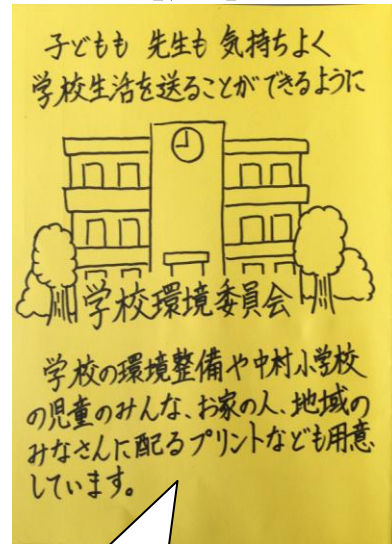 子どもも 先生も 気持ちよく
学校生活を送ることができるように
学校環境委員会
学校の環境整備や中村小学校
の児童のみんな、お家の人、地域の
みなさんに配るプリントなども用意
しています。